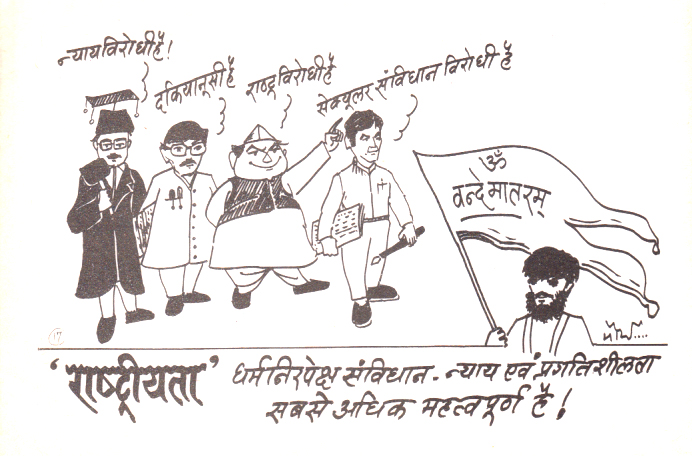 न्याय विरोधी है!
दकियानूसी है
राष्ट्र विरोधी है
सेक्यूलर संविधान विरोधी है
ॐ
वन्देमातरम्
17
'राष्ट्रीयता' धर्मनिरपेक्ष संविधान - न्याय एवं प्रगतिशीलता
सबसे अधिक महत्वपूर्ण है!